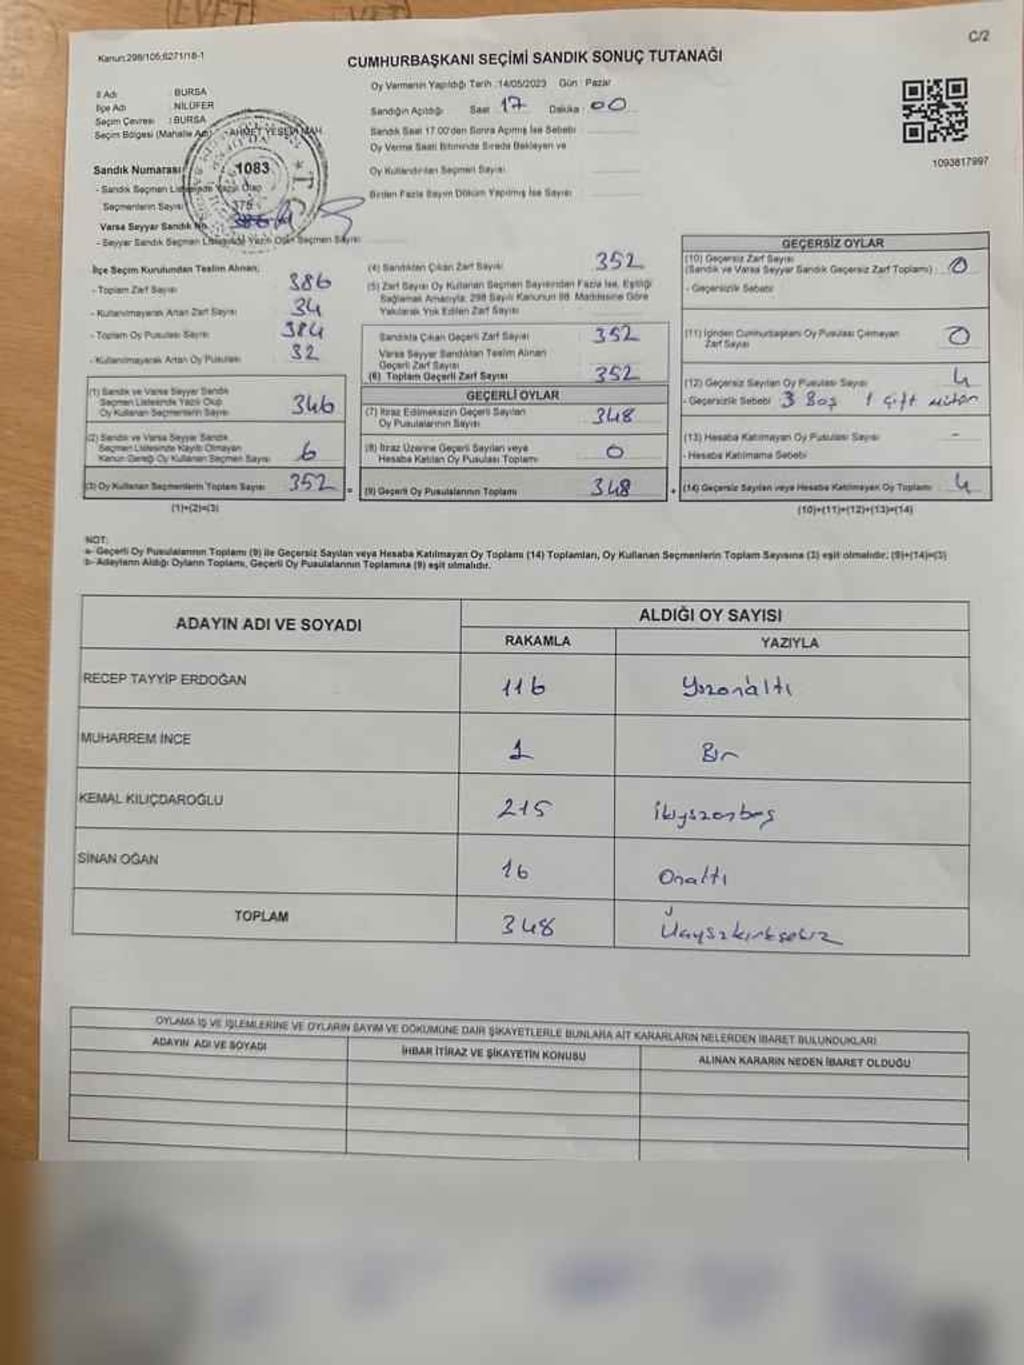 C/2
Kanun:298/105;6271/18-1
CUMHURBAŞKANI SEÇİMİ SANDIK SONUÇ TUTANAĞI
Oy Vermenin Yapıldığı Tarih :14/05/2023 Gün : Pazar
İl Adı : BURSA
İlçe Adı : NİLÜFER
Seçim Çevresi : BURSA
Seçim Bölgesi (Mahalle Adı) : AHMET YESEVİ MAH.
Sandığın Açıldığı Saat 17 Dakika : 00
Sandık Saat 17:00'den Sonra Açılmış İse Sebebi
Oy Verme Saati Bitiminde Sırada Bekleyen ve
Oy Kullandırılan Seçmen Sayısı
Birden Fazla Sayım Döküm Yapılmış İse Sayısı
1093817997
Sandık Numarası 1083
- Sandık Seçmen Listesinde Yazılı Olup
Seçmenlerin Sayısı 375
Varsa Seyyar Sandık No
- Seyyar Sandık Seçmen Listesinde Yazılı Olan Seçmen Sayısı
İlçe Seçim Kurulundan Teslim Alınan;
- Toplam Zarf Sayısı 386
- Kullanılmayarak Artan Zarf Sayısı 34
- Toplam Oy Pusulası Sayısı 384
- Kullanılmayarak Artan Oy Pusulası 32
(1) Sandık ve Varsa Seyyar Sandık
Seçmen Listesinde Yazılı Olup
Oy Kullanan Seçmenlerin Sayısı 346
(2) Sandık ve Varsa Seyyar Sandık
Seçmen Listesinde Kayıtlı Olmayan
Kanun Gereği Oy Kullanan Seçmen Sayısı 6
(3) Oy Kullanan Seçmenlerin Toplam Sayısı 352 =
(1)+(2)=(3)
(4) Sandıktan Çıkan Zarf Sayısı 352
(5) Zarf Sayısı Oy Kullanan Seçmen Sayısından Fazla İse, Eşitliği
Sağlamak Amacıyla, 298 Sayılı Kanunun 98. Maddesine Göre
Yakılarak Yok Edilen Zarf Sayısı
Sandıkta Çıkan Geçerli Zarf Sayısı 352
Varsa Seyyar Sandıktan Teslim Alınan
Geçerli Zarf Sayısı
(6) Toplam Geçerli Zarf Sayısı 352
GEÇERLİ OYLAR
(7) İtiraz Edilmeksizin Geçerli Sayılan
Oy Pusulalarının Sayısı 348
(8) İtiraz Üzerine Geçerli Sayılan veya
Hesaba Katılan Oy Pusulası Toplamı 0
(9) Geçerli Oy Pusulalarının Toplamı 348 +
GEÇERSİZ OYLAR
(10) Geçersiz Zarf Sayısı
(Sandık ve Varsa Seyyar Sandık Geçersiz Zarf Toplamı) 0
- Geçersizlik Sebebi
(11) İçinden Cumhurbaşkanı Oy Pusulası Çıkmayan
Zarf Sayısı 0
(12) Geçersiz Sayılan Oy Pusulası Sayısı 4
- Geçersizlik Sebebi 3 Boş 1 çift mühür
(13) Hesaba Katılmayan Oy Pusulası Sayısı -
- Hesaba Katılmama Sebebi
(14) Geçersiz Sayılan veya Hesaba Katılmayan Oy Toplamı 4
(10)+(11)+(12)+(13)=(14)
NOT:
a- Geçerli Oy Pusulalarının Toplamı (9) ile Geçersiz Sayılan veya Hesaba Katılmayan Oy Toplamı (14) Toplamları, Oy Kullanan Seçmenlerin Toplam Sayısına (3) eşit olmalıdır. (9)+(14)=(3)
b- Adayların Aldığı Oyların Toplamı, Geçerli Oy Pusulalarının Toplamına (9) eşit olmalıdır.
ADAYIN ADI VE SOYADI ALDIĞI OY SAYISI
RAKAMLA YAZIYLA
RECEP TAYYİP ERDOĞAN 116 Yüzonaltı
MUHARREM İNCE 1 Bir
KEMAL KILIÇDAROĞLU 215 ikiyüzonbeş
SİNAN OĞAN 16 Onaltı
TOPLAM 348 Üçyüzkırksekiz
OYLAMA İŞ VE İŞLEMLERİNE VE OYLARIN SAYIM VE DÖKÜMÜNE DAİR ŞİKAYETLERLE BUNLARA AİT KARARLARIN NELERDEN İBARET BULUNDUKLARI
ADAYIN ADI VE SOYADI İHBAR İTİRAZ VE ŞİKAYETİN KONUSU ALINAN KARARIN NEDEN İBARET OLDUĞU